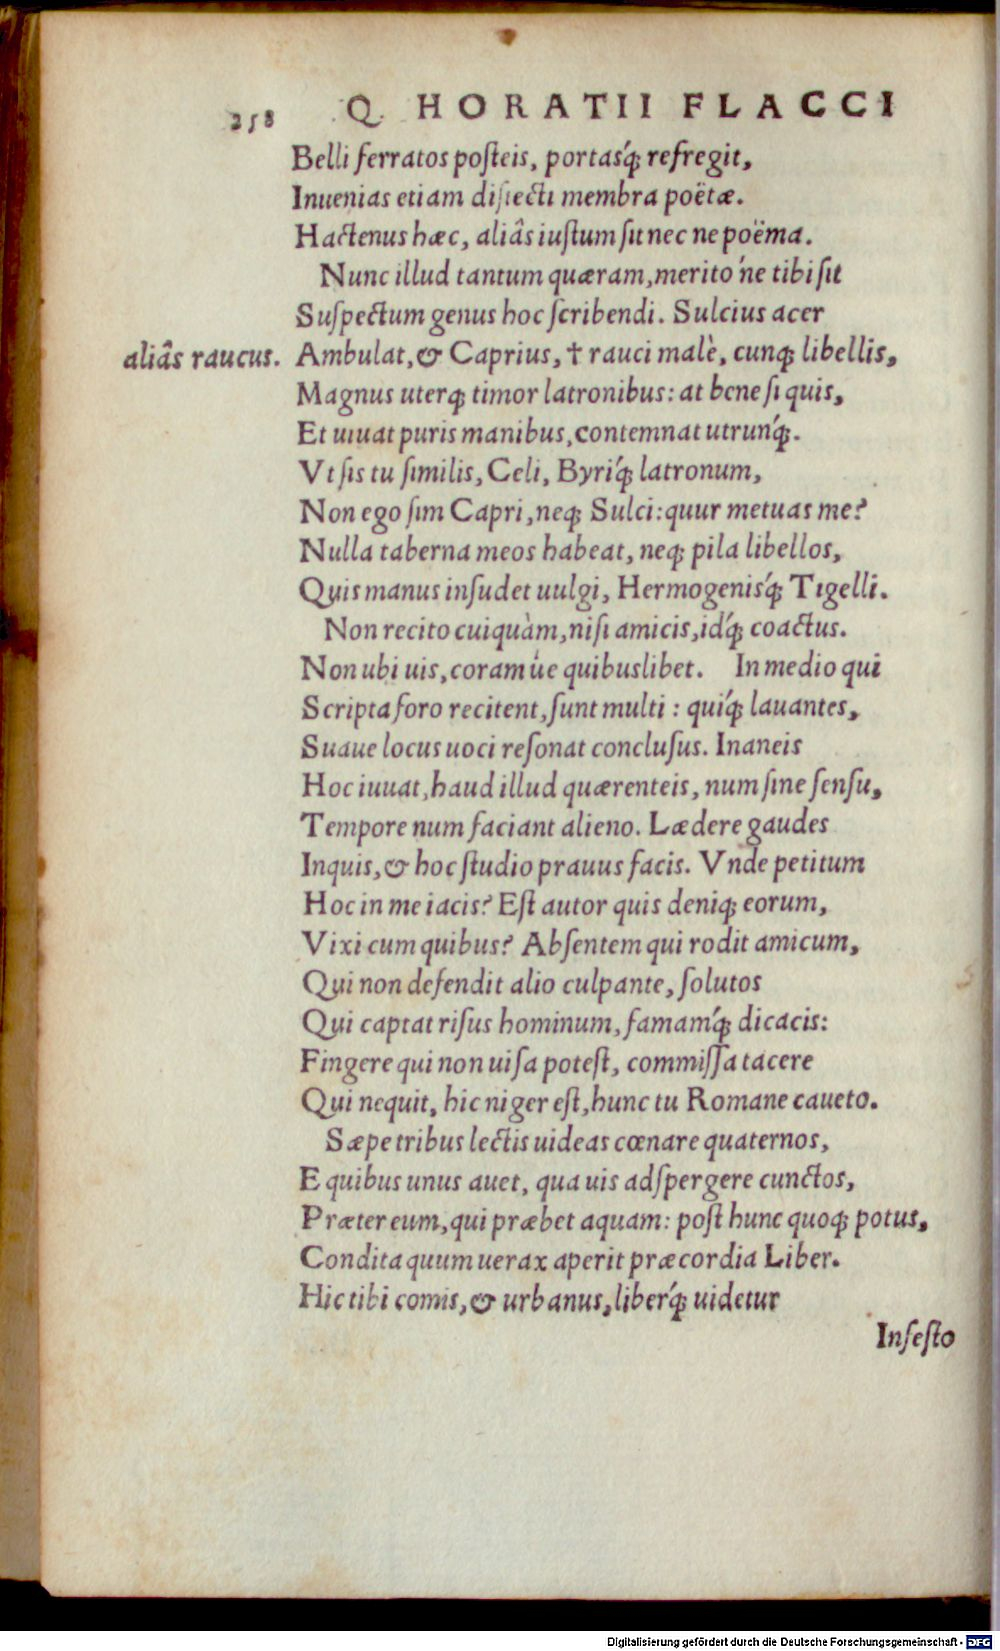 258 Q. HORATII FLACCI
Belli ferratos poſteis, portasq́; refregit,
Inuenias etiam diſiecti membra poëtæ.
Hactenus hæc, aliâs iuſtum ſit nec ne poëma.
Nunc illud tantum quæram, merito ́ne tibi ſit
Suſpectum genus hoc ſcribendi. Sulcius acer
aliâs raucus. Ambulat, & Caprius, † rauci malè, cunq; libellis,
Magnus uterq; timor latronibus: at bene ſi quis,
Et uiuat puris manibus, contemnat utrunq́;.
Vt ſis tu ſimilis, Celi, Byriq́; latronum,
Non ego ſim Capri, neq; Sulci: quur metuas me?
Nulla taberna meos habeat, neq; pila libellos,
Quis manus inſudet uulgi, Hermogenisq́; Tigelli.
Non recito cuiquàm, niſi amicis, idq́; coactus.
Non ubi uis, coram ùe quibuslibet. In medio qui
Scripta foro recitent, ſunt multi: quiq́; lauantes,
Suaue locus uoci reſonat concluſus. Inaneis
Hoc iuuat, haud illud quærenteis, num ſine ſenſu,
Tempore num faciant alieno. Lædere gaudes
Inquis, & hoc ſtudio prauus facis. Vnde petitum
Hoc in me iacis? Eſt autor quis deniq; eorum,
Vixi cum quibus? Abſentem qui rodit amicum,
Qui non defendit alio culpante, ſolutos
Qui captat riſus hominum, famamq́; dicacis:
Fingere qui non uiſa poteſt, commiſſa tacere
Qui nequit, hic niger eſt, hunc tu Romane caueto.
Sæpe tribus lectis uideas cœnare quaternos,
E quibus unus auet, qua uis adſpergere cunctos,
Præter eum, qui præbet aquam: poſt hunc quoq; potus,
Condita quum uerax aperit præcordia Liber.
Hic tibi comis, & urbanus, liberq́; uidetur
Infeſto
Digitalisierung gefördert durch die Deutsche Forschungsgemeinschaft - DFG